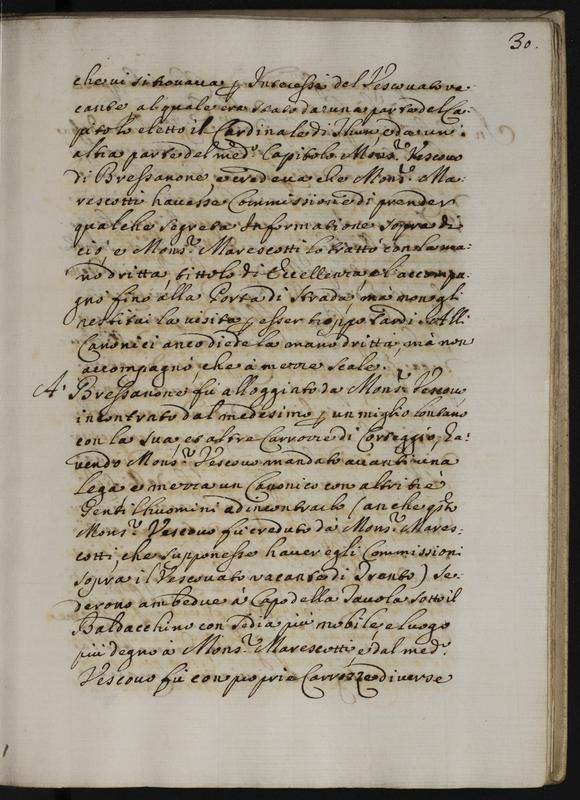 30.
che vi si trouaua p Interessi del Vescouato va
cante, al quale era stato da una parte del Ca
pitolo eletto il Cardinale di Thun, e da un'
altra parte del med.o Capitolo Mons.r Vescouo
di Bressanone, e credeua che Mons.r Ma:
rescotti hauesse Commissione di prender
qualche segreta Informatione sopra di
ciò, e Mons.r Marescotti lo trattò con la ma:
no dritta, tittolo di Eccellenza e l'accompa
gnò fino alla Porta di strada, mà non gli
restituì la visita p esser troppo tardi. Alli
Canonici anco diede la mano dritta, mà non
accompagnò, che à mezze scale.
A' Bressanone fù alloggiato da Mons.r Vescouo
incontrato dal medesimo p un miglio lontano
con la sua, et altre Carrozze di Corteggio, ha:
uendo Mons.r Vescouo mandato auanti una
lega e mezza un Canonico con altri tre
Gentilhuomini ad incontrarlo (anche qsto
Mons.r Vescouo fù creduto da Mons.r Mares:
cotti, che supponesse hauer egli Commissioni
sopra il Vescouato vacante di Trento) se:
derono ambedue à Capo della Tauola sotto il
Baldacchino con sedia più nobile, e luogo
più degno a Mons.r Marescotti, e dal med.o
Vescouo fù con proprie Carrozze diuerse